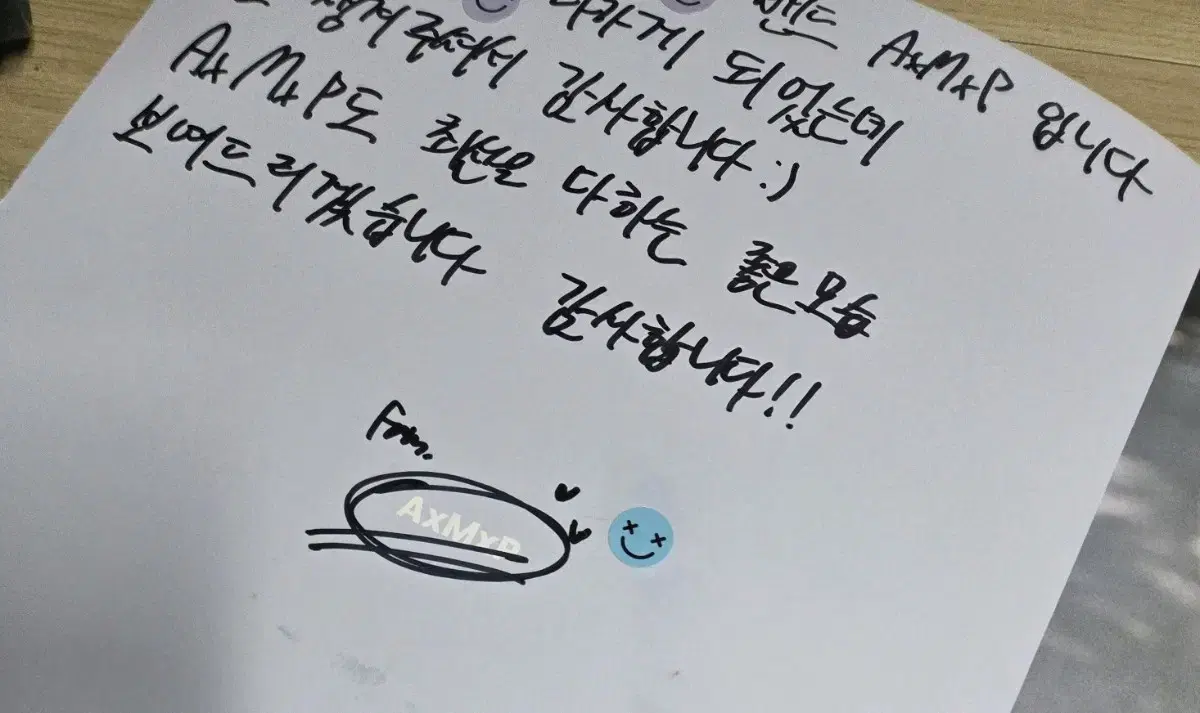 밴드 AxMxP 입니다
나가게 되었는데
챙겨주셔서 감사합니다 :)
AxMxP도 최선을 다하는 좋은모습
보여드리겠습니다 감사합니다!!
From.
AxMxP